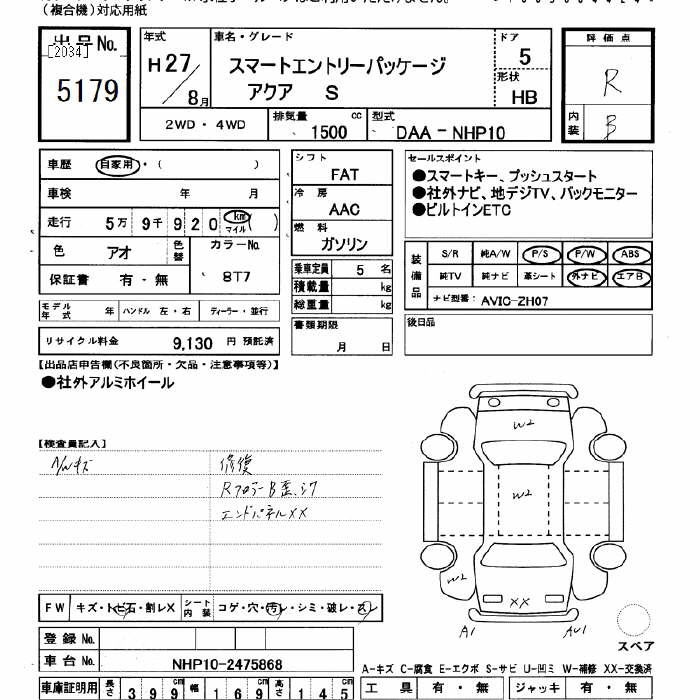 (複合機)対応用紙
出品No.
[2034]
5179
年式
H27/8月
車名・グレード
スマートエントリーパッケージ
アクア S
ドア
5
形状
HB
評価点
R
内装
B
2WD・4WD
排気量 cc
1500
型式
DAA-NHP10
車歴 自家用・( )
車検 年 月
走行 5万 9千 920 km マイル ( )
色 アオ 色替
カラーNo.
8T7
保証書 有・無
シフト
FAT
冷房
AAC
燃料
ガソリン
乗車定員 5 名
積載量 kg
総重量 kg
書類期限
月 日
セールスポイント
●スマートキー、プッシュスタート
●社外ナビ、地デジTV、バックモニター
●ビルトインETC
装備品
S/R 純A/W P/S P/W ABS
純TV 純ナビ 革シート 外ナビ エアB
ナビ型番: AVIC-ZH07
後日品
モデル年式 年 ハンドル 左・右 ディーラー・並行
リサイクル料金 9,130 円 預託済
【出品店申告欄(不良箇所・欠品・注意事項等)】
●社外アルミホイール
【検査員記入】
修復
エンドパネルXX
W2
W2
W2
XX
A1
スペア
FW キズ・トビ石・割レX シート内装 コゲ・穴・汚レ・シミ・破レ・スレ
登録No.
車台No. NHP10-2475868
車庫証明用 長さ 399cm 幅 169cm 高さ 145cm
A-キズ C-腐食 E-エクボ S-サビ U-凹ミ W-補修 XX-交換済
工具 有・無 ジャッキ 有・無